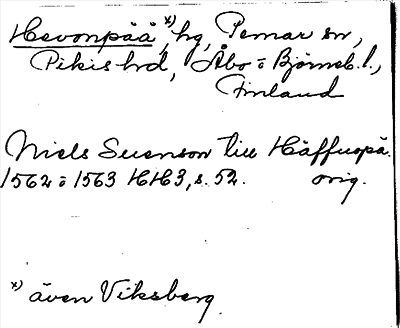 Hevonpää x), hg, Pemar sn,
Pikis hd, Åbo o Björneb. l.,
Finland
Niels Suenson till Häffuopä.
1562 o 1563 HH3, s. 52. orig.
x) även Viksberg